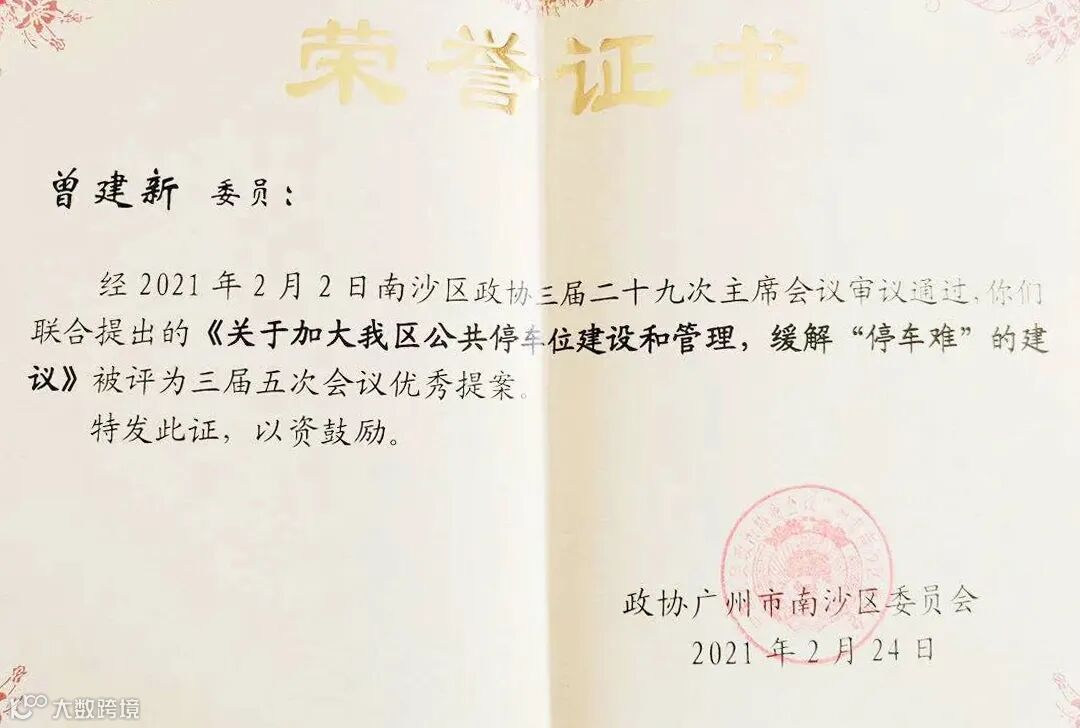 荣誉证书
曾建新 委员：
经2021年2月2日南沙区政协三届二十九次主席会议审议通过，你们
联合提出的《关于加大我区公共停车位建设和管理，缓解“停车难”的建
议》被评为三届五次会议优秀提案。
特发此证，以资鼓励。
政协广州市南沙区委员会
2021年2月24日
大数跨境